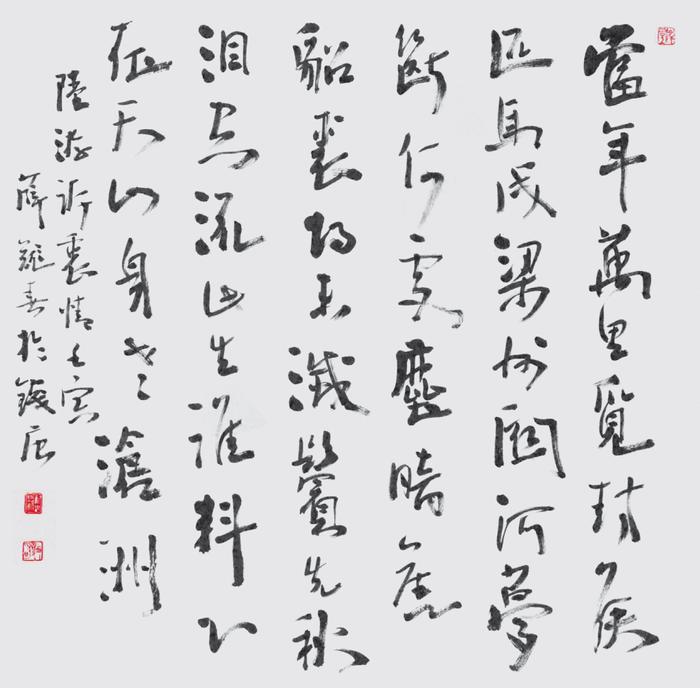 當年萬里覓封侯
匹馬戍梁州關河夢
斷何處塵暗舊
貂裘胡未滅鬢先秋
泪空流此生誰料心
在天山身老滄洲
陸游訴衷情壬寅
薛龍春於